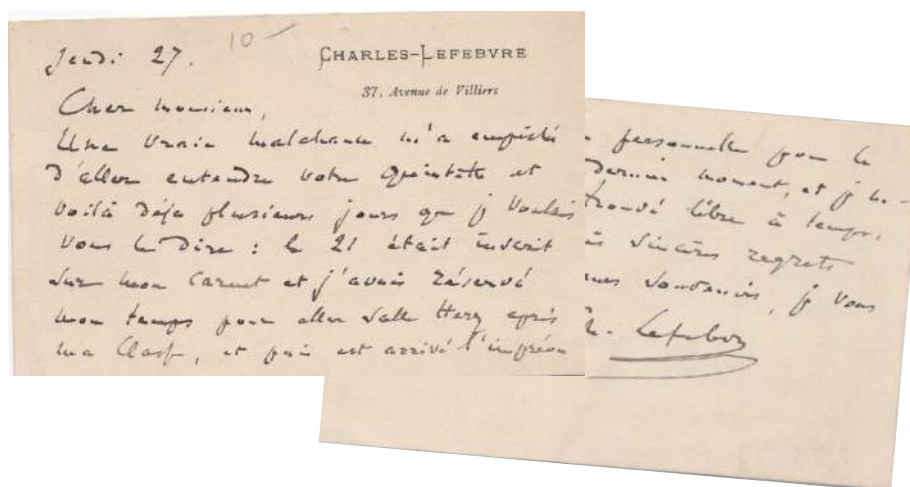 Jeudi 27.
10 -
CHARLES-LEFEBVRE
37, Avenue de Villiers
Cher monsieur,
Une vraie malchance m'a empêché
d'aller entendre votre Quintette et
voilà déjà plusieurs jours que je voulais
vous le dire : le 21 était inscrit
sur mon carnet et j'avais réservé
mon temps pour aller salle Herz après
ma classe, et puis est arrivé l'imprévu
personnelle pour le
dernier moment, et je ne
trouvé libre à temps.
sincères regrets
souvenirs, je vous
Ch. Lefebvre